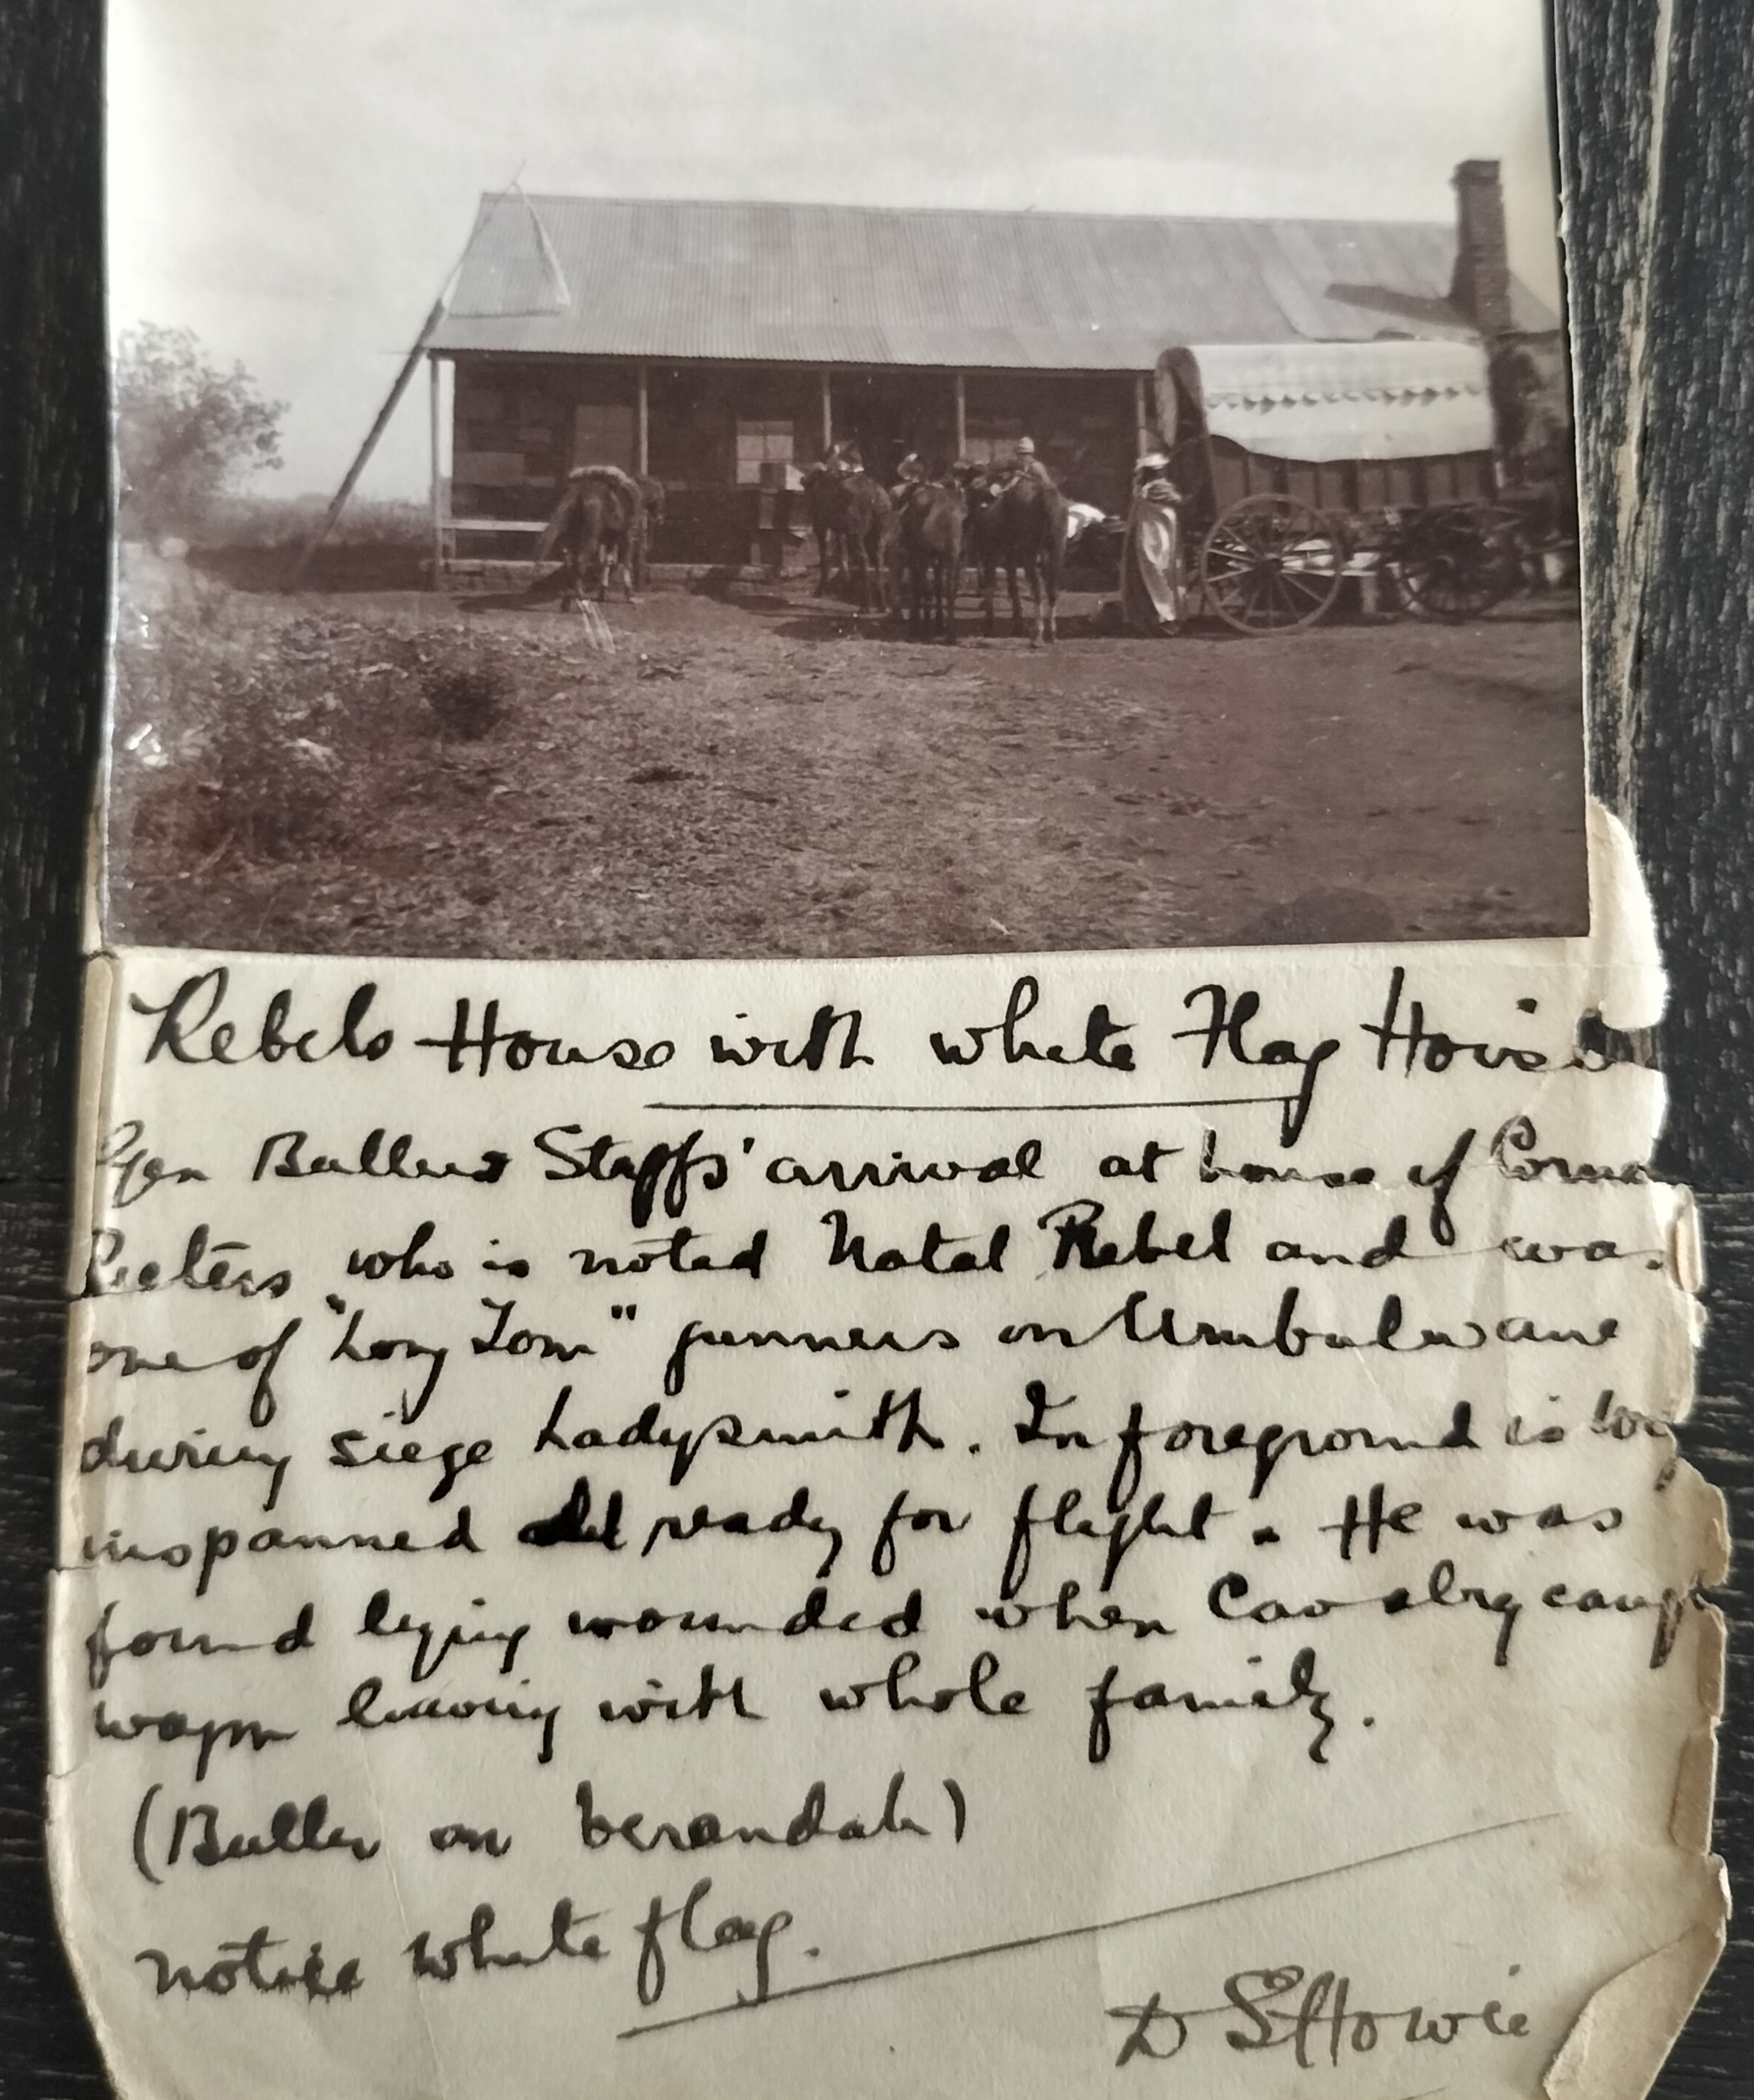 Rebels House with white Flag Hois
Gen Bullers Staffs' arrival at house of
who is noted Natal Rebel and was
one of "Long Tom" gunners on Umbulwane
during siege Ladysmith. In foreground is
inspanned all ready for flight. He was
found lying wounded when Cavalry caug
wagon leaving with whole family.
(Buller on verandah)
notice white flag.
D S Howie